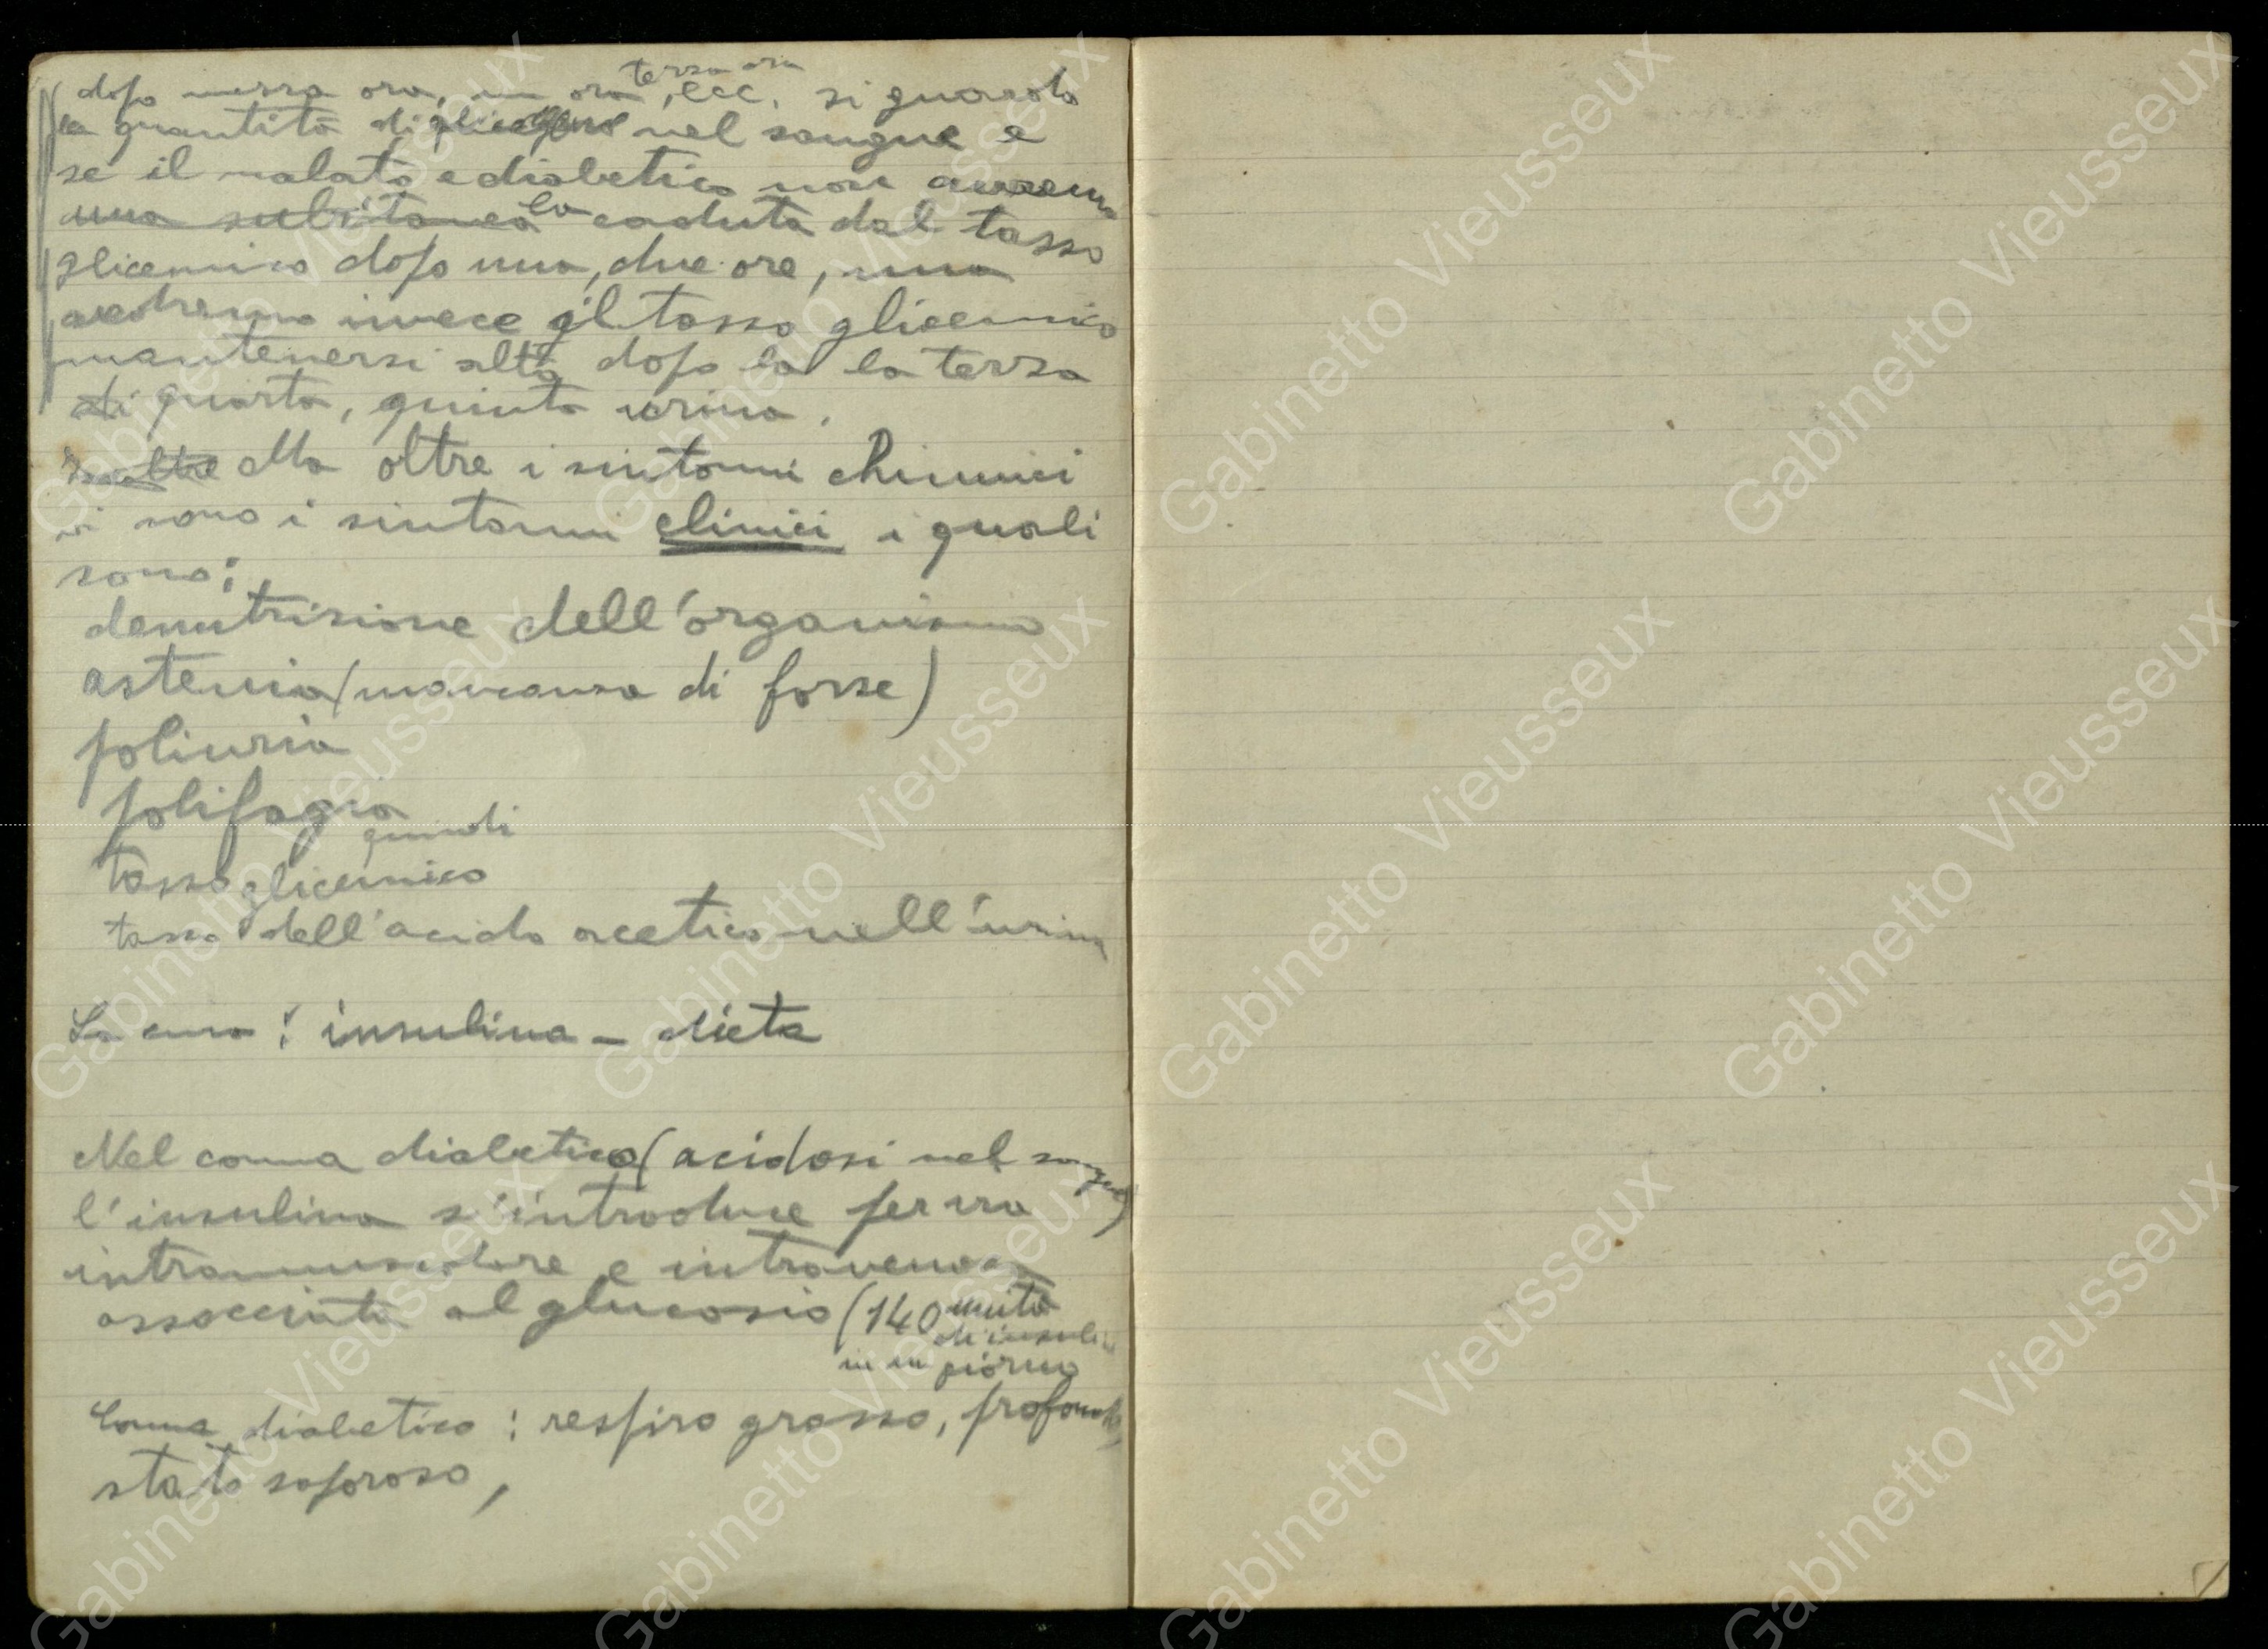 terza ora
dopo mezza ora, un ora, ecc. si guarda
la quantità di nel sangue e
se il malato e diabetico non avremo
una subitanea la caduta del tasso
glicemico dopo una, due ore, una
vedremo invece il tasso glicemico
mantenersi alto dopo la la terza
di quarta, quinta urina.
Inoltre Ma oltre i sintomi chimici
vi sono i sintomi clinici i quali
sono:
denutrizione dell'organismo
astenia (mancanza di forze)
poliuria
polifagia
quindi
tasso glicemico
tasso dell'acido acetico nell'urina
La cura: insulina - dieta
Nel coma diabetico (acidosi nel sangue)
l'insulina s'introduce per via
intramuscolare e intravenosa
associata al glucosio (140 unità
di insulina
in un giorno
Coma diabetico: respiro grosso, profondo,
stato soporoso,
Gabinetto Vieusseux